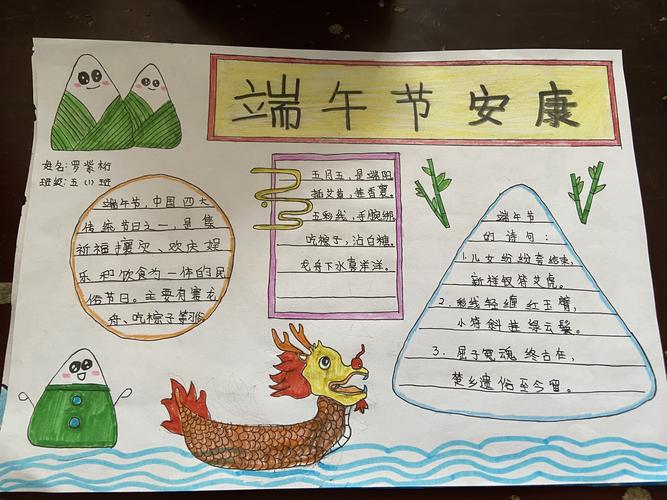 端午节安康
姓名:罗紫桁
班级:五(1)班
端午节,中国四大
传统节日之一,是集
祈福攘灾、欢庆娱
乐和饮食为一体的民
俗节日。主要有赛龙
舟、吃粽子等习俗
五月五,是端阳
插艾草,挂香囊。
五彩线,手腕绑
吃粽子,沾白糖。
龙舟下水喜洋洋。
端午节
的诗句:
1.儿女纷纷夸结束,
新样钗符艾虎。
2.彩线轻缠红玉臂,
小符斜挂绿云鬟。
3.屈子冤魂终古在,
楚乡遗俗至今留。